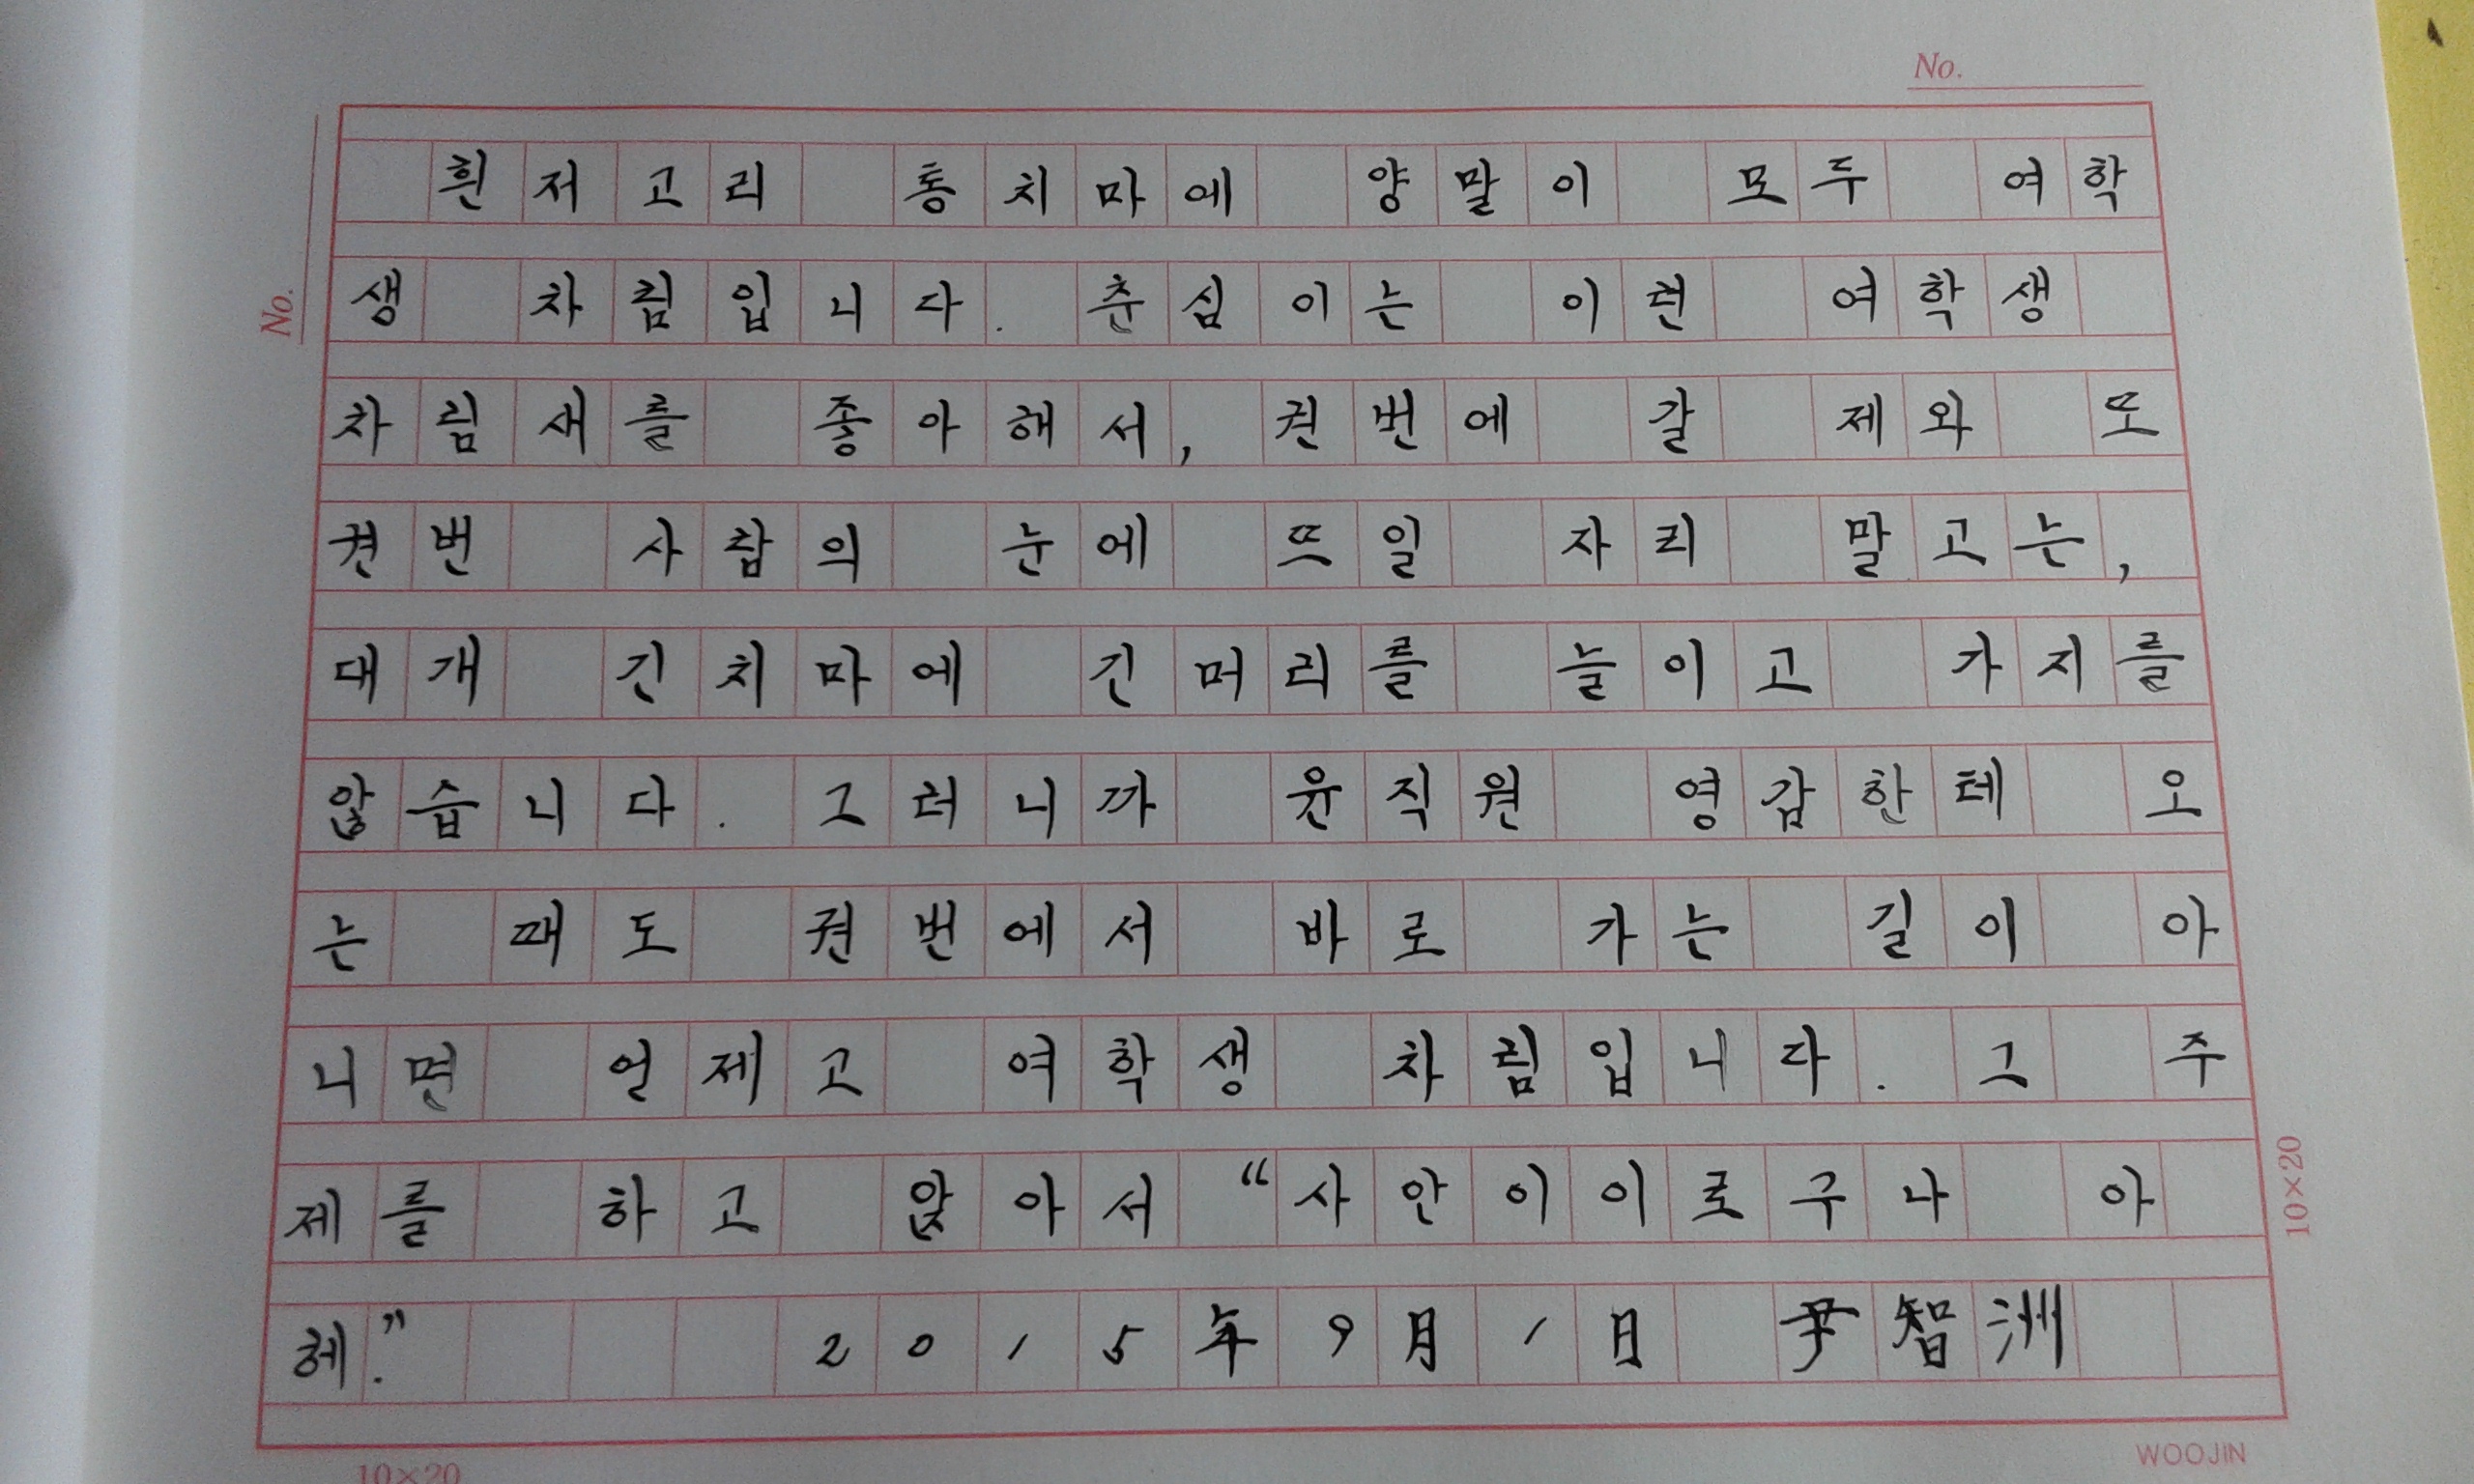 No.
No.
흰저고리 통치마에 양말이 모두 여학
생 차림입니다. 춘심이는 이런 여학생
차림새를 좋아해서, 권번에 갈 제와 또
권번 사람의 눈에 뜨일 자리 말고는,
대개 긴치마에 긴머리를 늘이고 가지를
않습니다. 그러니까 윤직원 영감한테 오
는 때도 권번에서 바로 가는 길이 아
니면 언제고 여학생 차림입니다. 그 주
제를 하고 앉아서 “사안이이로구나 아
헤.” 2015年 9月 1日 尹智洲
10×20
10×20
WOOJIN